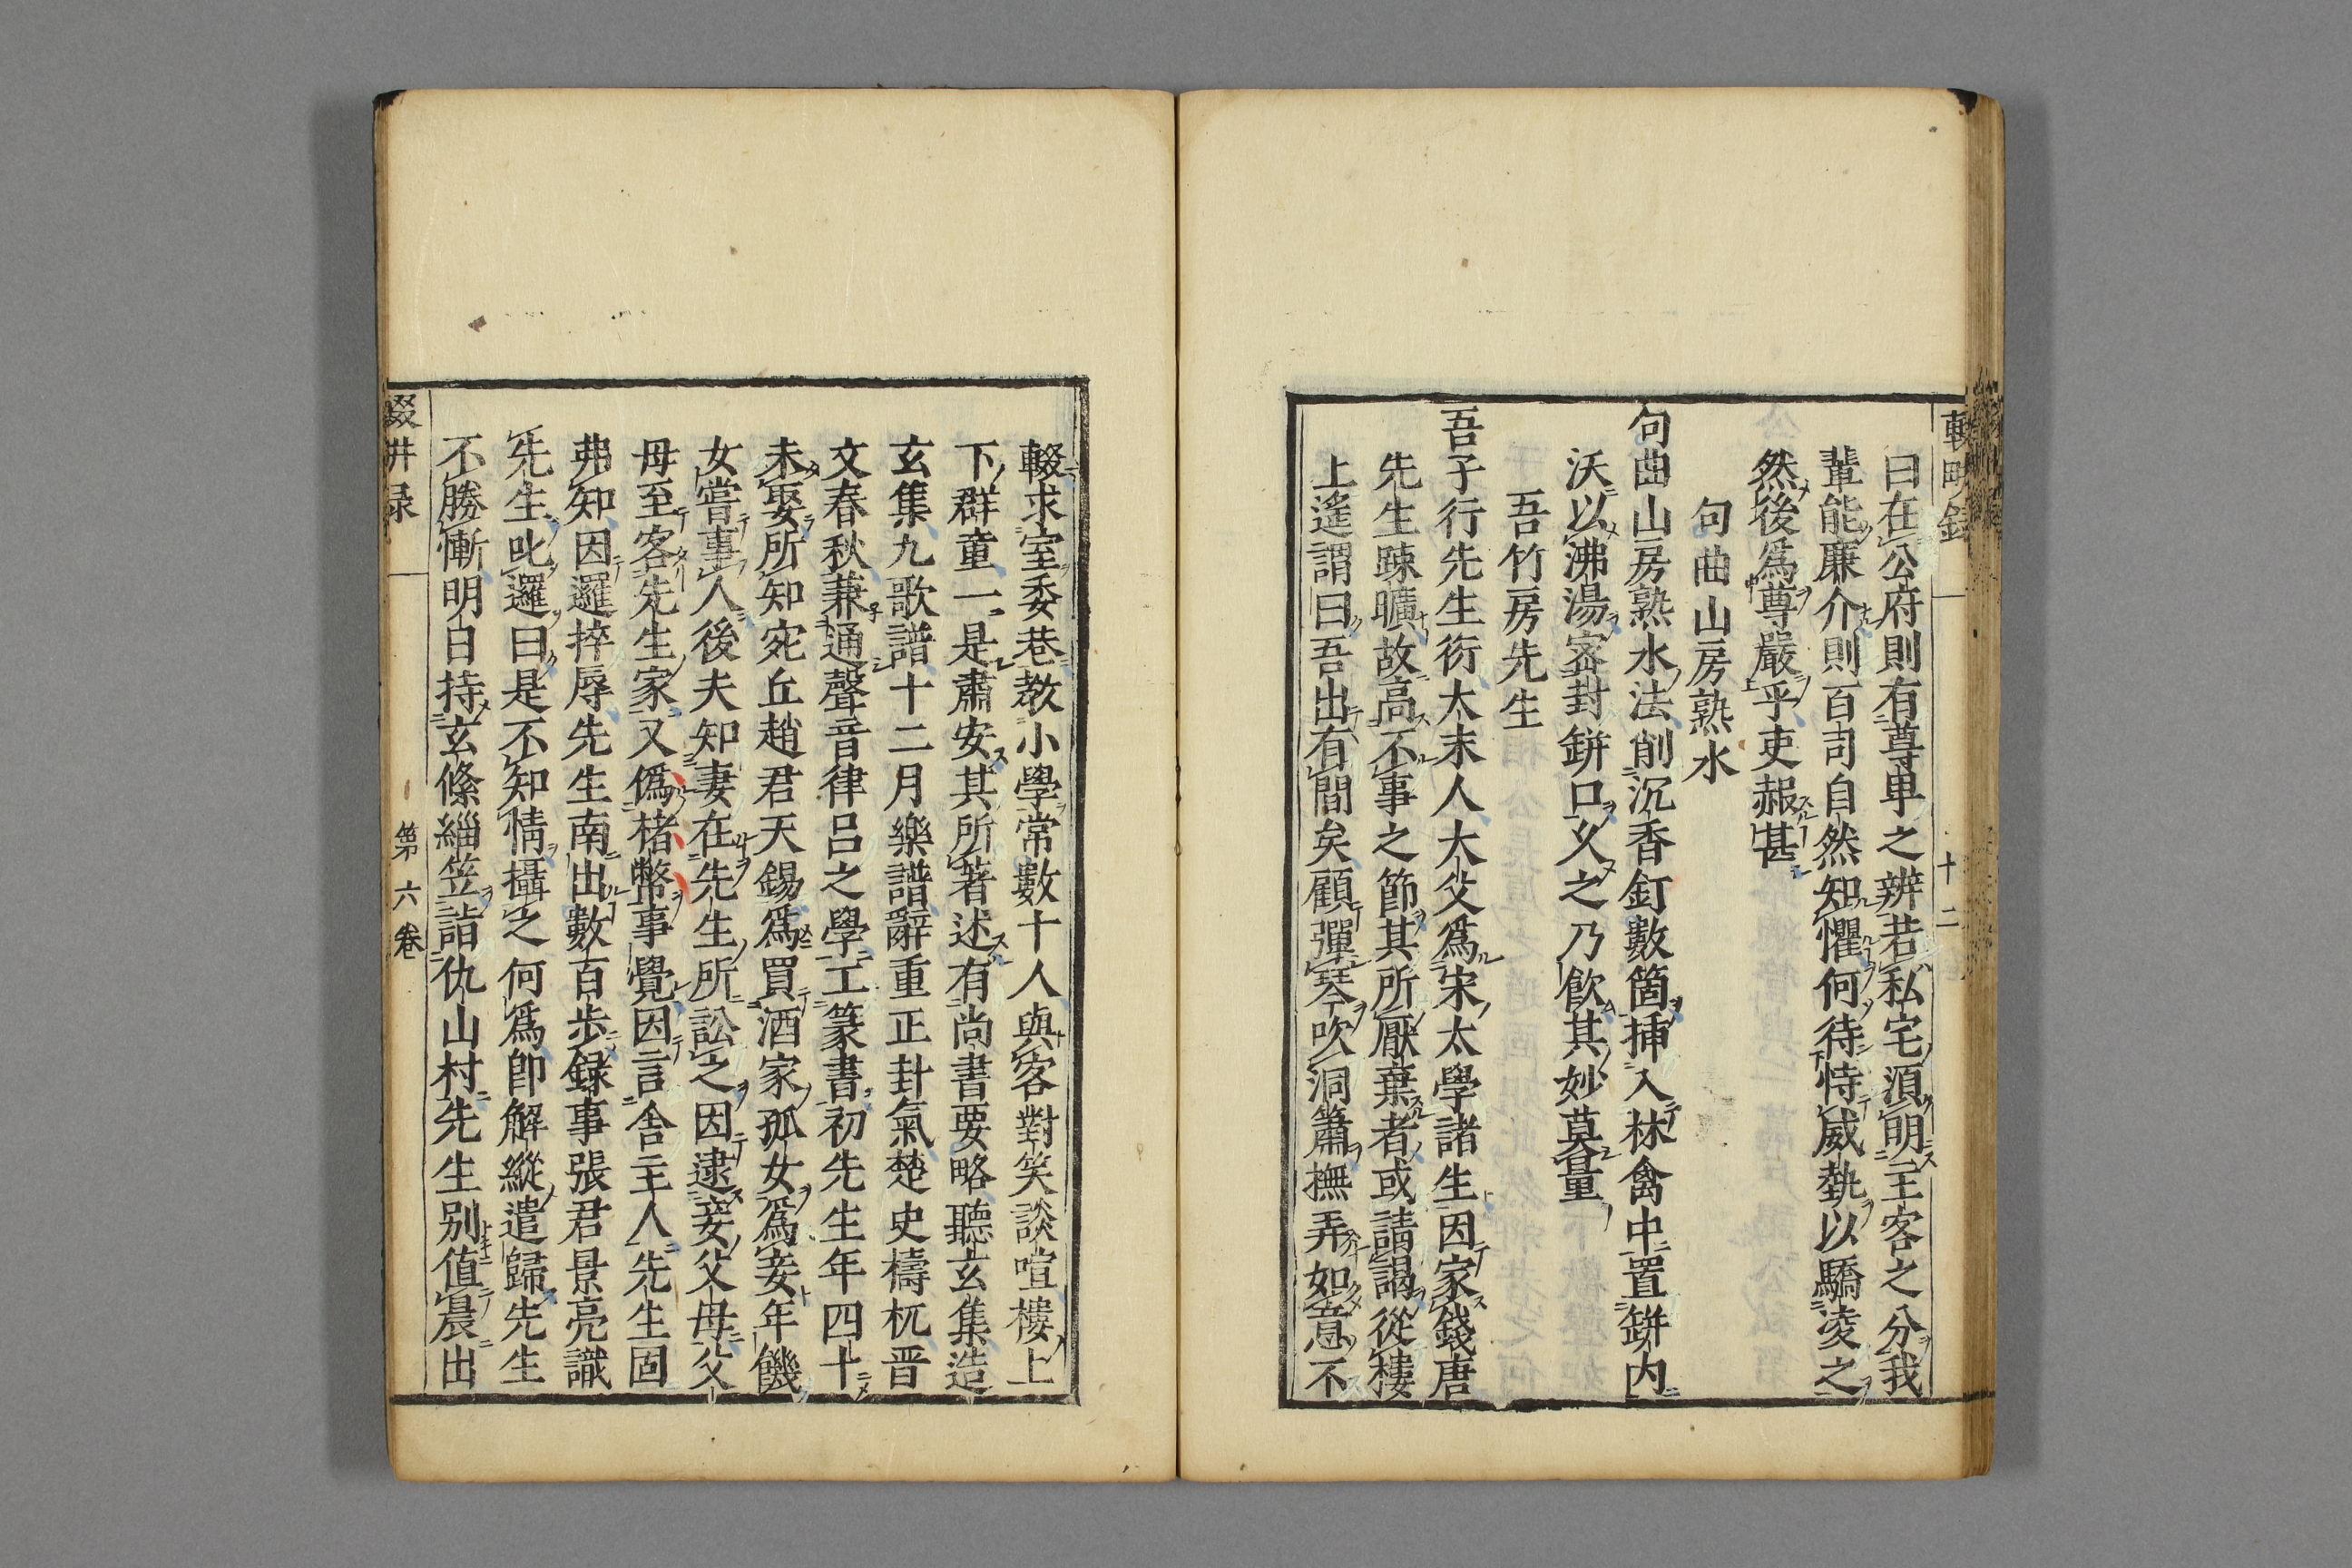 日在公府則有尊卑之辨若私宅須明主客之分我
輩能廉介則百司自然知懼何待恃威㙯以驕凌之
然後爲尊嚴乎吏赧甚
句曲山房熟水
句曲山房熟水法削沉香釘數箇挿入林禽中置鉼内
沃以沸湯宻封鉼口乆之乃飲其妙莫量
吾竹房先生
吾子行先生衍大末人大父爲宋太學諸生因家錢唐
先生踈曠故高不事之節其所厭棄者或請謁從樓
上遙謂曰吾出有間矣顧彈琴吹洞簫撫弄如意不
十二
輟求室委巷教小學常數十人與客對笑談喧樓上
下群童一是肅安其所著述有尚書要略聽玄集造
玄集九歌譜十二月樂譜辭重正卦氣楚史檮杌晋
文春秋兼通聲音律吕之學工篆書初先生年四十
未娶所知宛丘趙君天錫爲買酒家孤女爲妾年饑
女嘗事人後夫知妻在先生所訟之因逮妾父母父
母至客先生家又僞楮幣事覺因言舎主人先生固
弗知因邏捽辱先生南出數百步録事張君景亮識
先生叱邏曰是不知情攝之何爲即解縱遣歸先生
不勝慚明日持玄絛緇笠詣仇山村先生别值晨出
第六卷